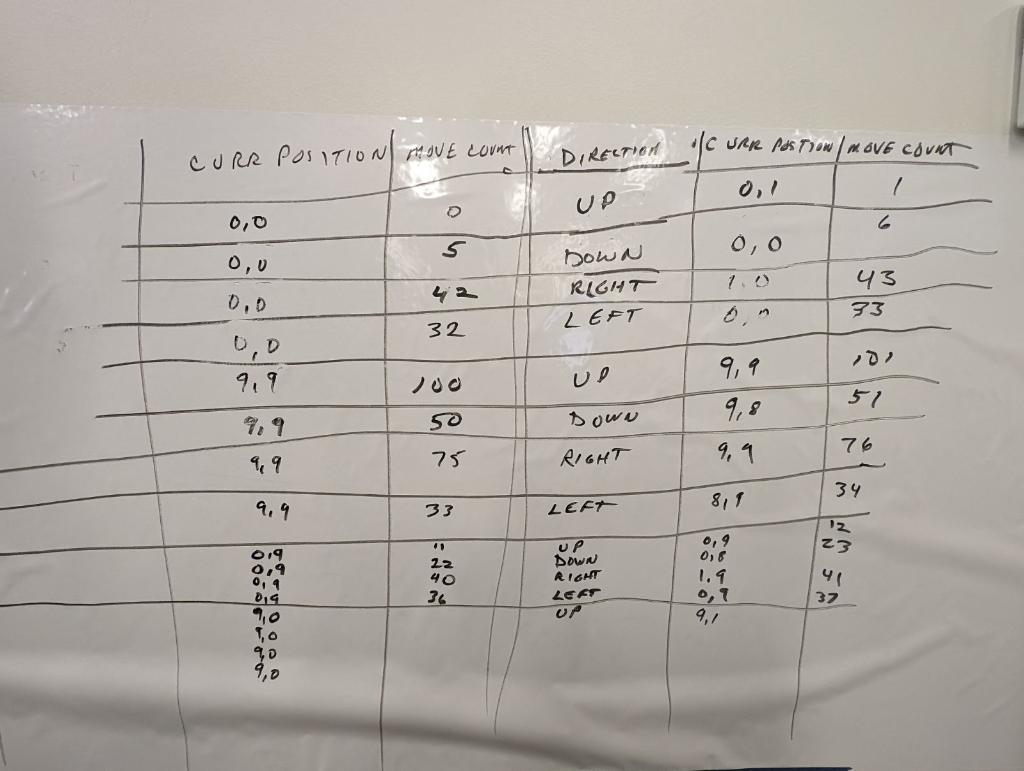 CURR POSITION MOVE COUNT DIRECTION CURR POSTION MOVE COUNT
0,0 0 UP 0,1 1
0,0 5 DOWN 0,0 6
0,0 42 RIGHT 1.0 43
0,0 32 LEFT 0,0 33
9,9 100 UP 9,9 101
9,9 50 DOWN 9,8 51
9,9 75 RIGHT 9,9 76
9,9 33 LEFT 8,9 34
0,9 11 UP 0,9 12
0,9 22 DOWN 0,8 23
0,9 40 RIGHT 1,9 41
0,9 36 LEFT 0,9 37
9,0 UP 9,1
9,0
9,0
9,0